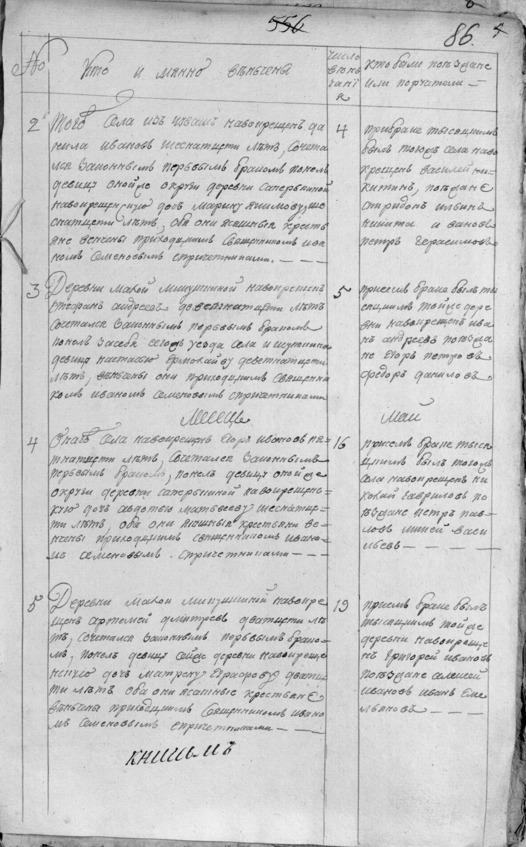 556
86.
No
Кто и имянно венчены
число
венъ
чания
кто были поезжане
или поручители
2
Того села из чуваш навокрещен да
нила иванов шеснатцети летъ, сочета
лся законнымъ первымъ бракомъ понелъ
девицу оной же округи деревни
навокрещенскую дочь марину шес
натцети летъ, оба они ясашныя кресть
яне венчены приходцкимъ священникомъ ива
номъ семеновымъ спричетниками
4
при браке тысяцкимъ
былъ тогожъ села наво
крещенъ василей ни
китинъ, поезжане
спиридонъ ильинъ
никита иванов
петръ герасимовъ
3
Деревни малой микушкиной навокрещенъ
степанъ андреевъ деветнатцети летъ
сочетался законнымъ первымъ бракомъ
понелъ за себя сего уезда села
девицу настасью ермолаеву деветнатцети
летъ, венчены они приходцкимъ священни
комъ иваномъ семеновымъ спричетниками
5
при семъ браке былъ ты
сяцкимъ той же дере
вни навокрещенъ ива
нъ андреевъ поезжа
не егоръ петровъ
федоръ даниловъ
Месеца
май
4
Оного села навокрещенъ егоръ ивановъ пе
тнатцети летъ, сочетался законнымъ
первымъ бракомъ, понелъ девицу оной же
округи деревни навокрещенс
кую дочь авдотью матвееву шеснатце
ти летъ, оба они ясашныя крестьяне ве
нчены приходцкимъ священникомъ ивано
мъ семеновымъ. спричетниками
16
при семъ браке тыся
цкимъ былъ тогожъ
села навокрещенъ ни
колай гавриловъ по
езжане петръ пав
ловъ васи
льевъ
5
Деревни малой микушкиной навокре
щенъ артемей дмитреевъ дватцети ле
тъ, сочетался законнымъ первымъ брако
мъ, понелъ девицу сей же деревни навокреще
нскую дочь матрену дватце
ти летъ оба они ясашныя крестьяне
венчены приходцкимъ священникомъ ивано
мъ семеновымъ спричетниками
19
при семъ браке былъ
тысяцкимъ той же
деревни навокреще
нъ григорей ивановъ
поезжане алексей
ивановъ иванъ еме
льяновъ